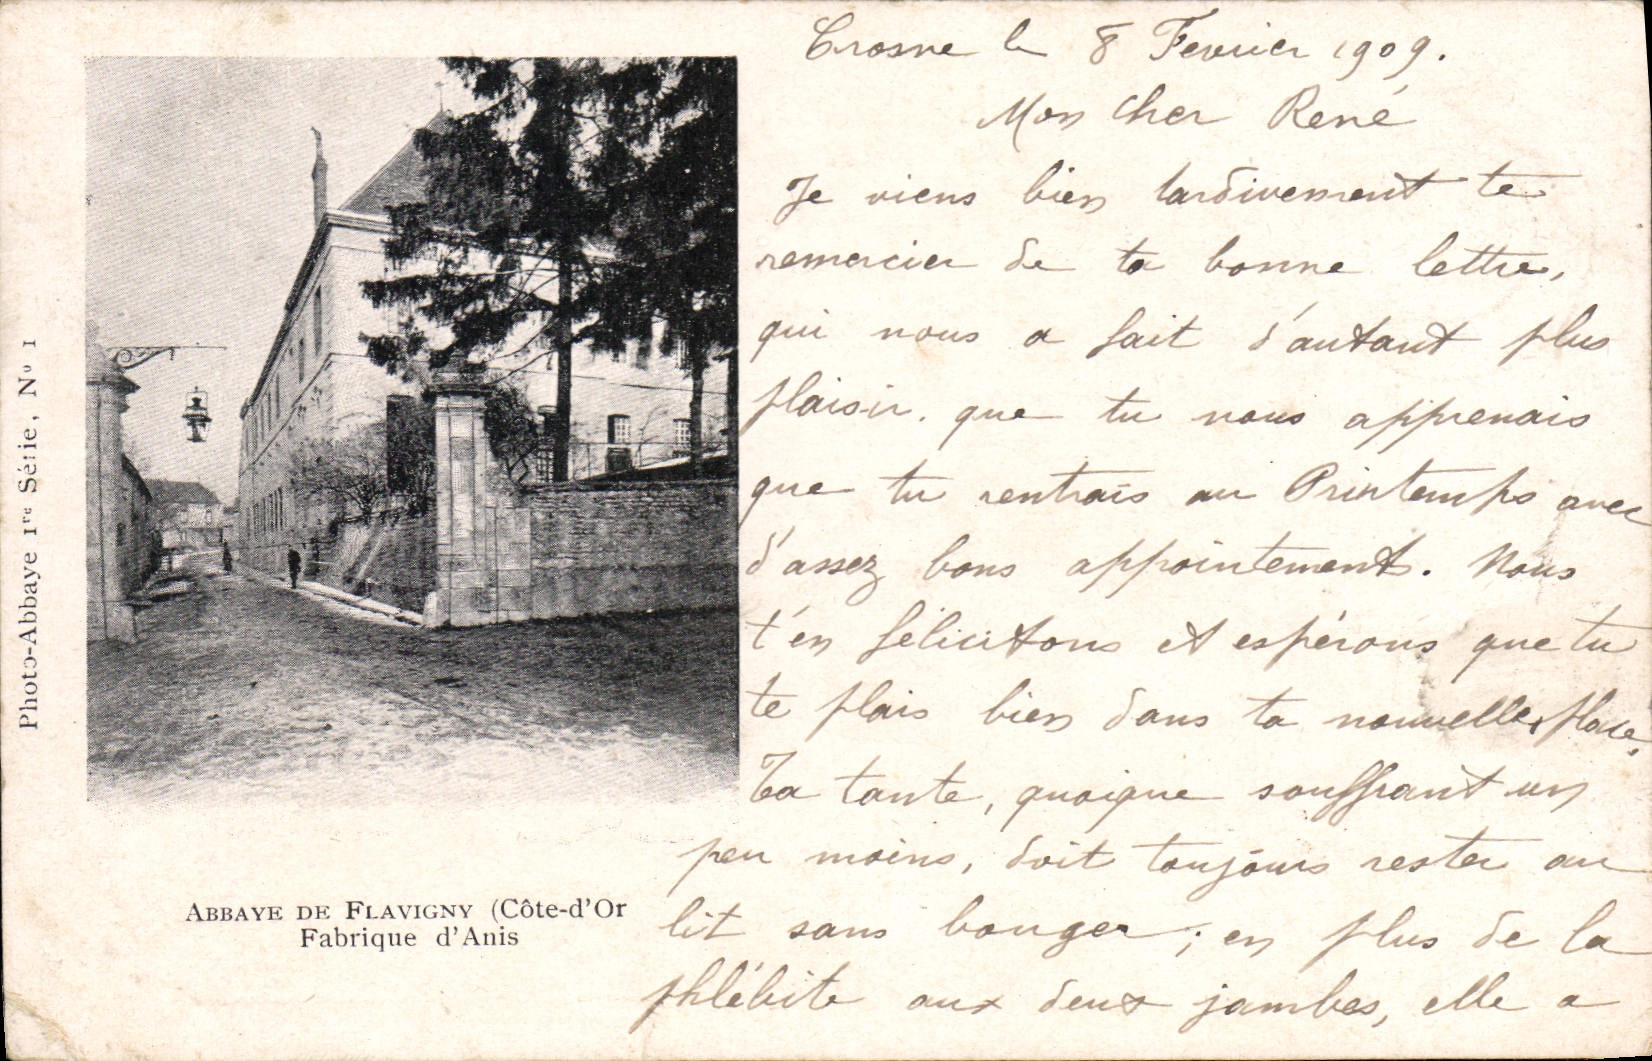 Crosne le 8 Fevrier 1909.
Mon cher René
Je viens bien tardivement te
remercier de ta bonne lettre,
qui nous a fait d'autant plus
plaisir. que tu nous apprenais
que tu rentrais au Printemps avec
d'assez bons appointement. Nous
t'en félicitons et espérons que tu
te plais bien dans ta nouvelle place.
Ta tante, quoique souffrant un
peu moins, doit toujours rester au
lit sans bouger ; en plus de la
phlébite aux deux jambes, elle a
Photo-Abbaye 1re Série, No 1
ABBAYE DE FLAVIGNY (Côte-d'Or
Fabrique d'Anis